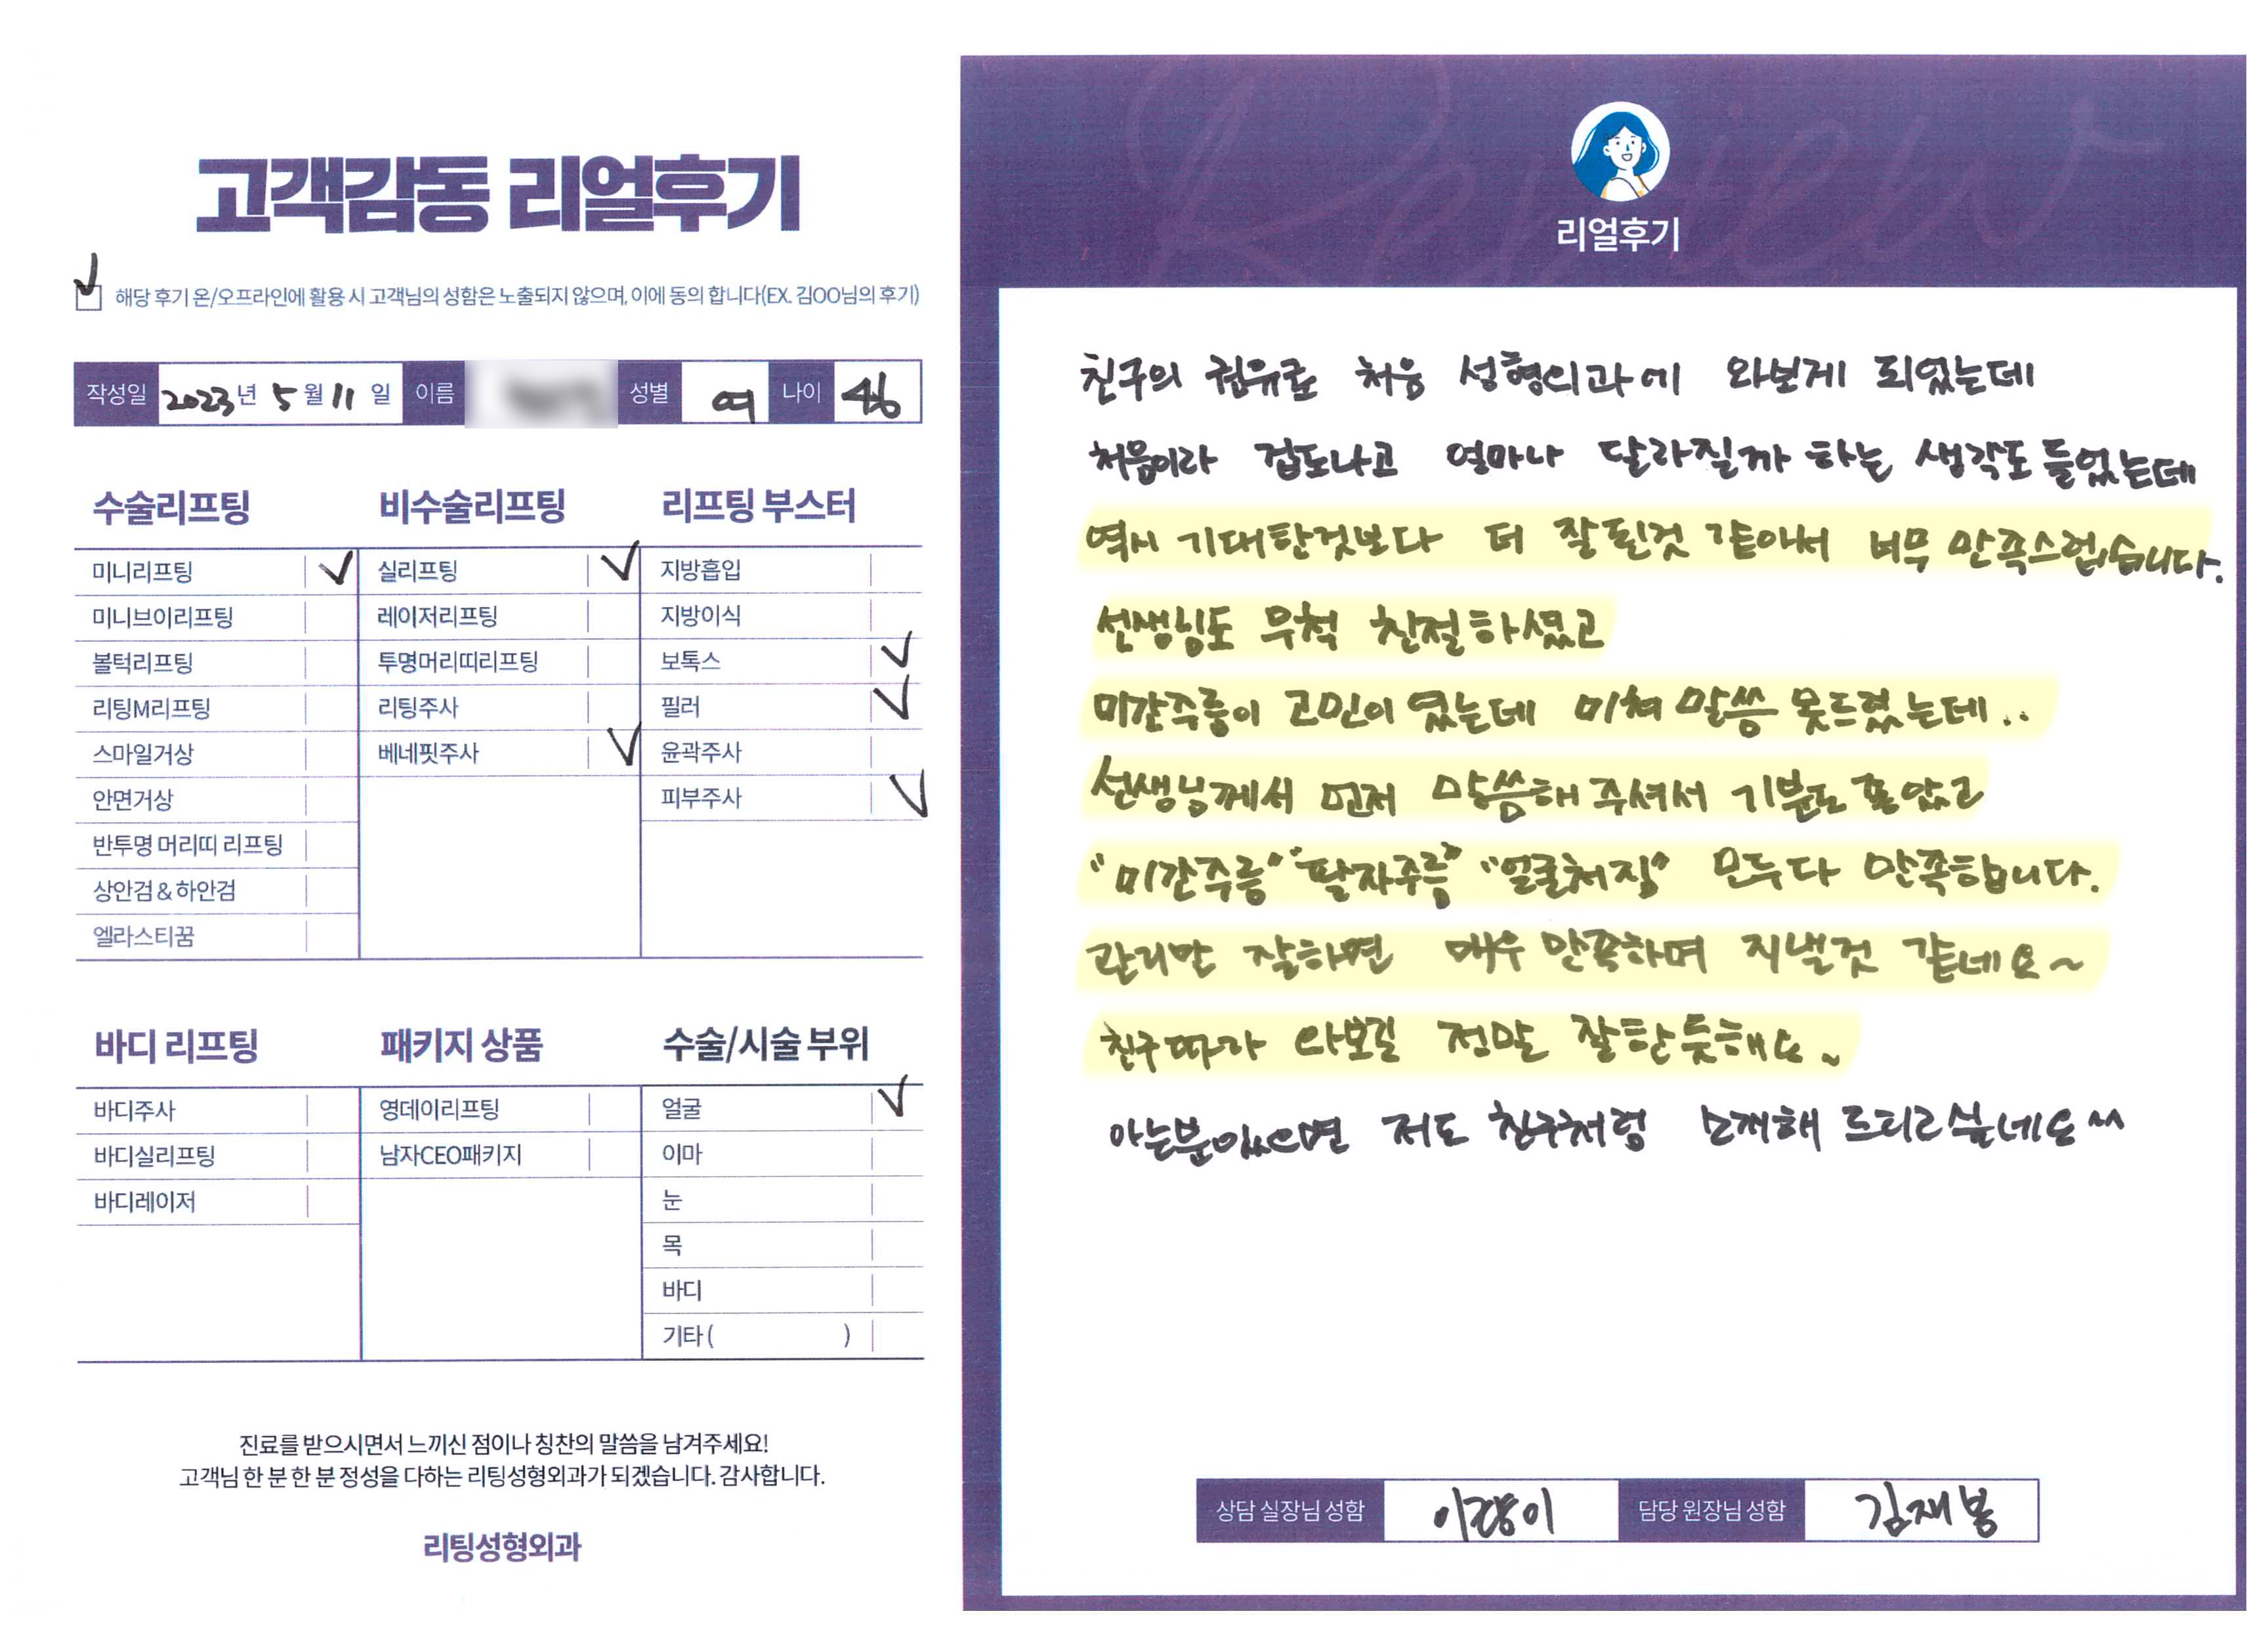 고객감동 리얼후기
해당 후기 온/오프라인에 활용 시 고객님의 성함은 노출되지 않으며, 이에 동의 합니다(EX. 김OO님의 후기)
작성일 2023년 5월 11일 이름 성별 여 나이 46
수술리프팅
미니리프팅
미니브이리프팅
볼턱리프팅
리팅M리프팅
스마일거상
안면거상
반투명 머리띠 리프팅
상안검 & 하안검
엘라스티꿈
비수술리프팅
실리프팅
레이저리프팅
투명머리띠리프팅
리팅주사
베네핏주사
리프팅 부스터
지방흡입
지방이식
보톡스
필러
윤곽주사
피부주사
바디 리프팅
바디주사
바디실리프팅
바디레이저
패키지 상품
영데이리프팅
남자CEO패키지
수술/시술 부위
얼굴
이마
눈
목
바디
기타 ( )
진료를 받으시면서 느끼신 점이나 칭찬의 말씀을 남겨주세요!
고객님 한 분 한 분 정성을 다하는 리팅성형외과가 되겠습니다. 감사합니다.
리팅성형외과
Review
리얼후기
친구의 권유로 처음 성형외과에 와보게 되었는데
처음이라 겁도나고 얼마나 달라질까 하는 생각도 들었는데
역시 기대한것보다 더 잘된것 같아서 너무 만족스럽습니다.
선생님도 무척 친절하셨고
미간주름이 고민이 였는데 미쳐 말씀 못드렸는데..
선생님께서 먼저 말씀해 주셔서 기분도 좋았고
"미간주름" "팔자주름" "얼굴처짐" 모두다 만족합니다.
관리만 잘하면 매우 만족하며 지낼것 같네요~
친구따라 와보길 정말 잘한듯해요~
아는분있으면 저도 친구처럼 소개해 드리고싶네요^^
상담 실장님 성함 담당 원장님 성함 김재봉